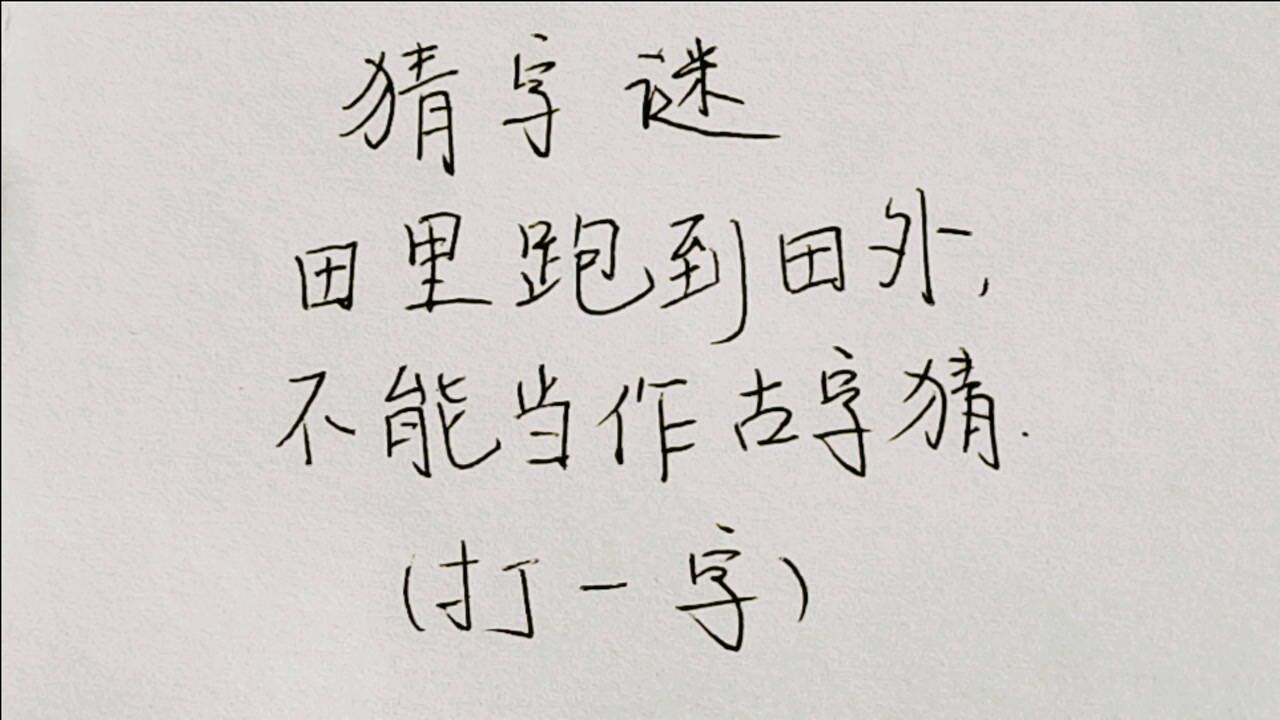 猜字谜
田里跑到田外,
不能当作古字猜.
(打一字)